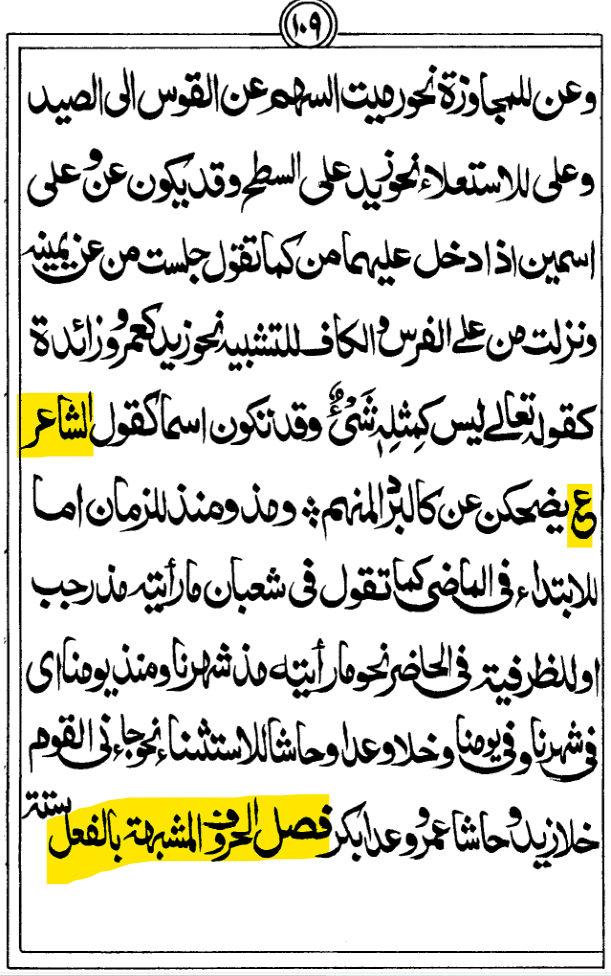 ١٠٩
وعن للمجاوزة نحو رميت السهم عن القوس الى الصيد
وعلى للاستعلاء نحو زيد على السطح وقد يكون عن وعلى
اسمين اذا دخل عليهما من كما تقول جلست من عن يمينه
ونزلت من على الفرس والكاف للتشبيه نحو زيد كعمرو وزائدة
كقوله تعالى ليس كَمِثْلِهٖ شَيْءٌ وقد تكون اسما كقول الشاعر
ع يضحكن عن كالبرد المنهم ؞ ومذ ومنذ للزمان اما
للابتداء في الماضى كما تقول في شعبان ما رأيته مذ رجب
او للظرفية في الحاضر نحو ما رأيته مذ شهرنا ومنذ يومنا اى
في شهرنا وفي يومنا وخلا وعدا وحاشا للاستثناء نحو جاءنى القوم
خلا زيد وحاشا عمرو وعدا بكر فصل الحروف المشبهة بالفعل ستة